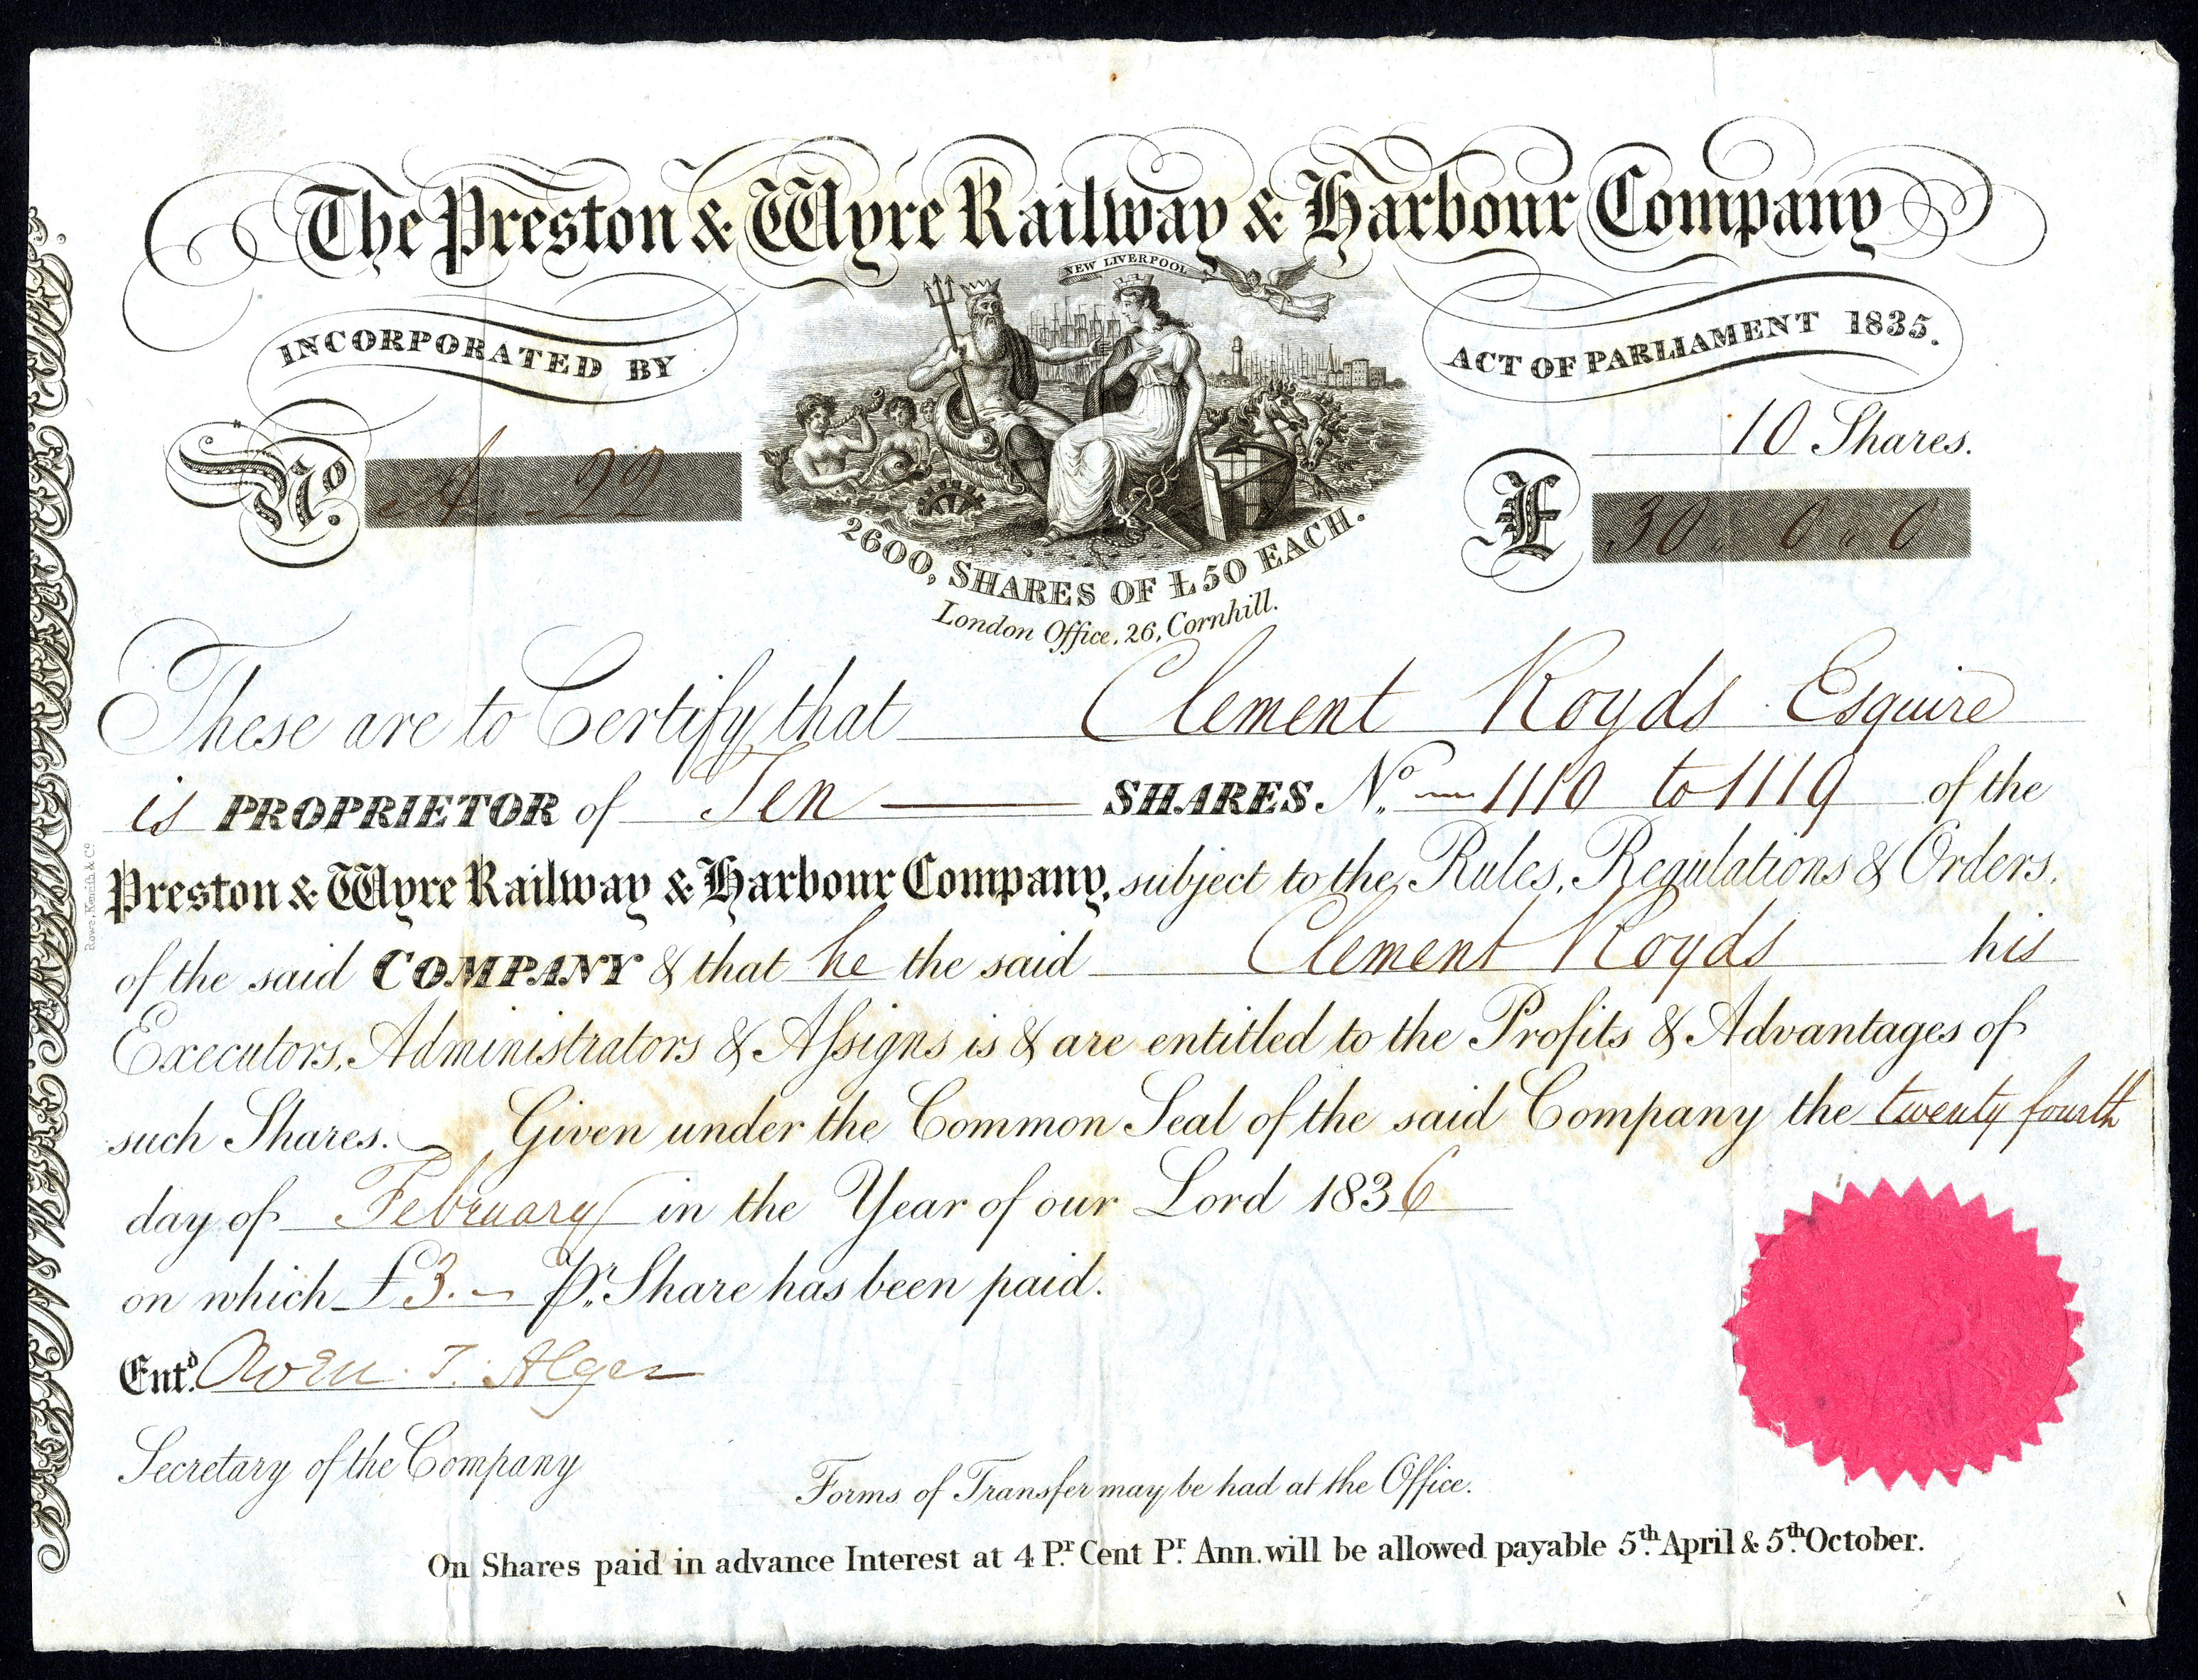 The Preston & Wyre Railway & Harbour Company
NEW LIVERPOOL
INCORPORATED BY
ACT OF PARLIAMENT 1835.
10 Shares.
No. A 22
£ 30 " 0 " 0
2600, SHARES OF £50 EACH.
London Office, 26, Cornhill.
These are to Certify that Clement Royds Esquire
is PROPRIETOR of Ten SHARES No. 1110 to 1119 of the
Preston & Wyre Railway & Harbour Company, subject to the Rules, Regulations & Orders,
of the said COMPANY & that he the said Clement Royds his
Executors, Administrators & Assigns is & are entitled to the Profits & Advantages of
such Shares. Given under the Common Seal of the said Company the twenty fourth
day of February in the Year of our Lord 1836
on which £3. – Pr. Share has been paid.
Entd. Owen T. Alger
Secretary of the Company
Forms of Transfer may be had at the Office.
On Shares paid in advance Interest at 4 Pr. Cent Pr. Ann. will be allowed payable 5th. April & 5th. October.